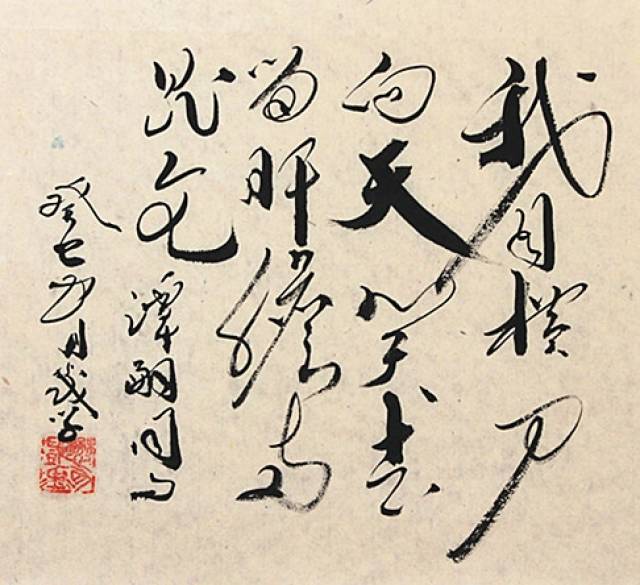 我自横刀
向天笑去
留肝膽两
昆仑 谭嗣同句
癸巳 月 学